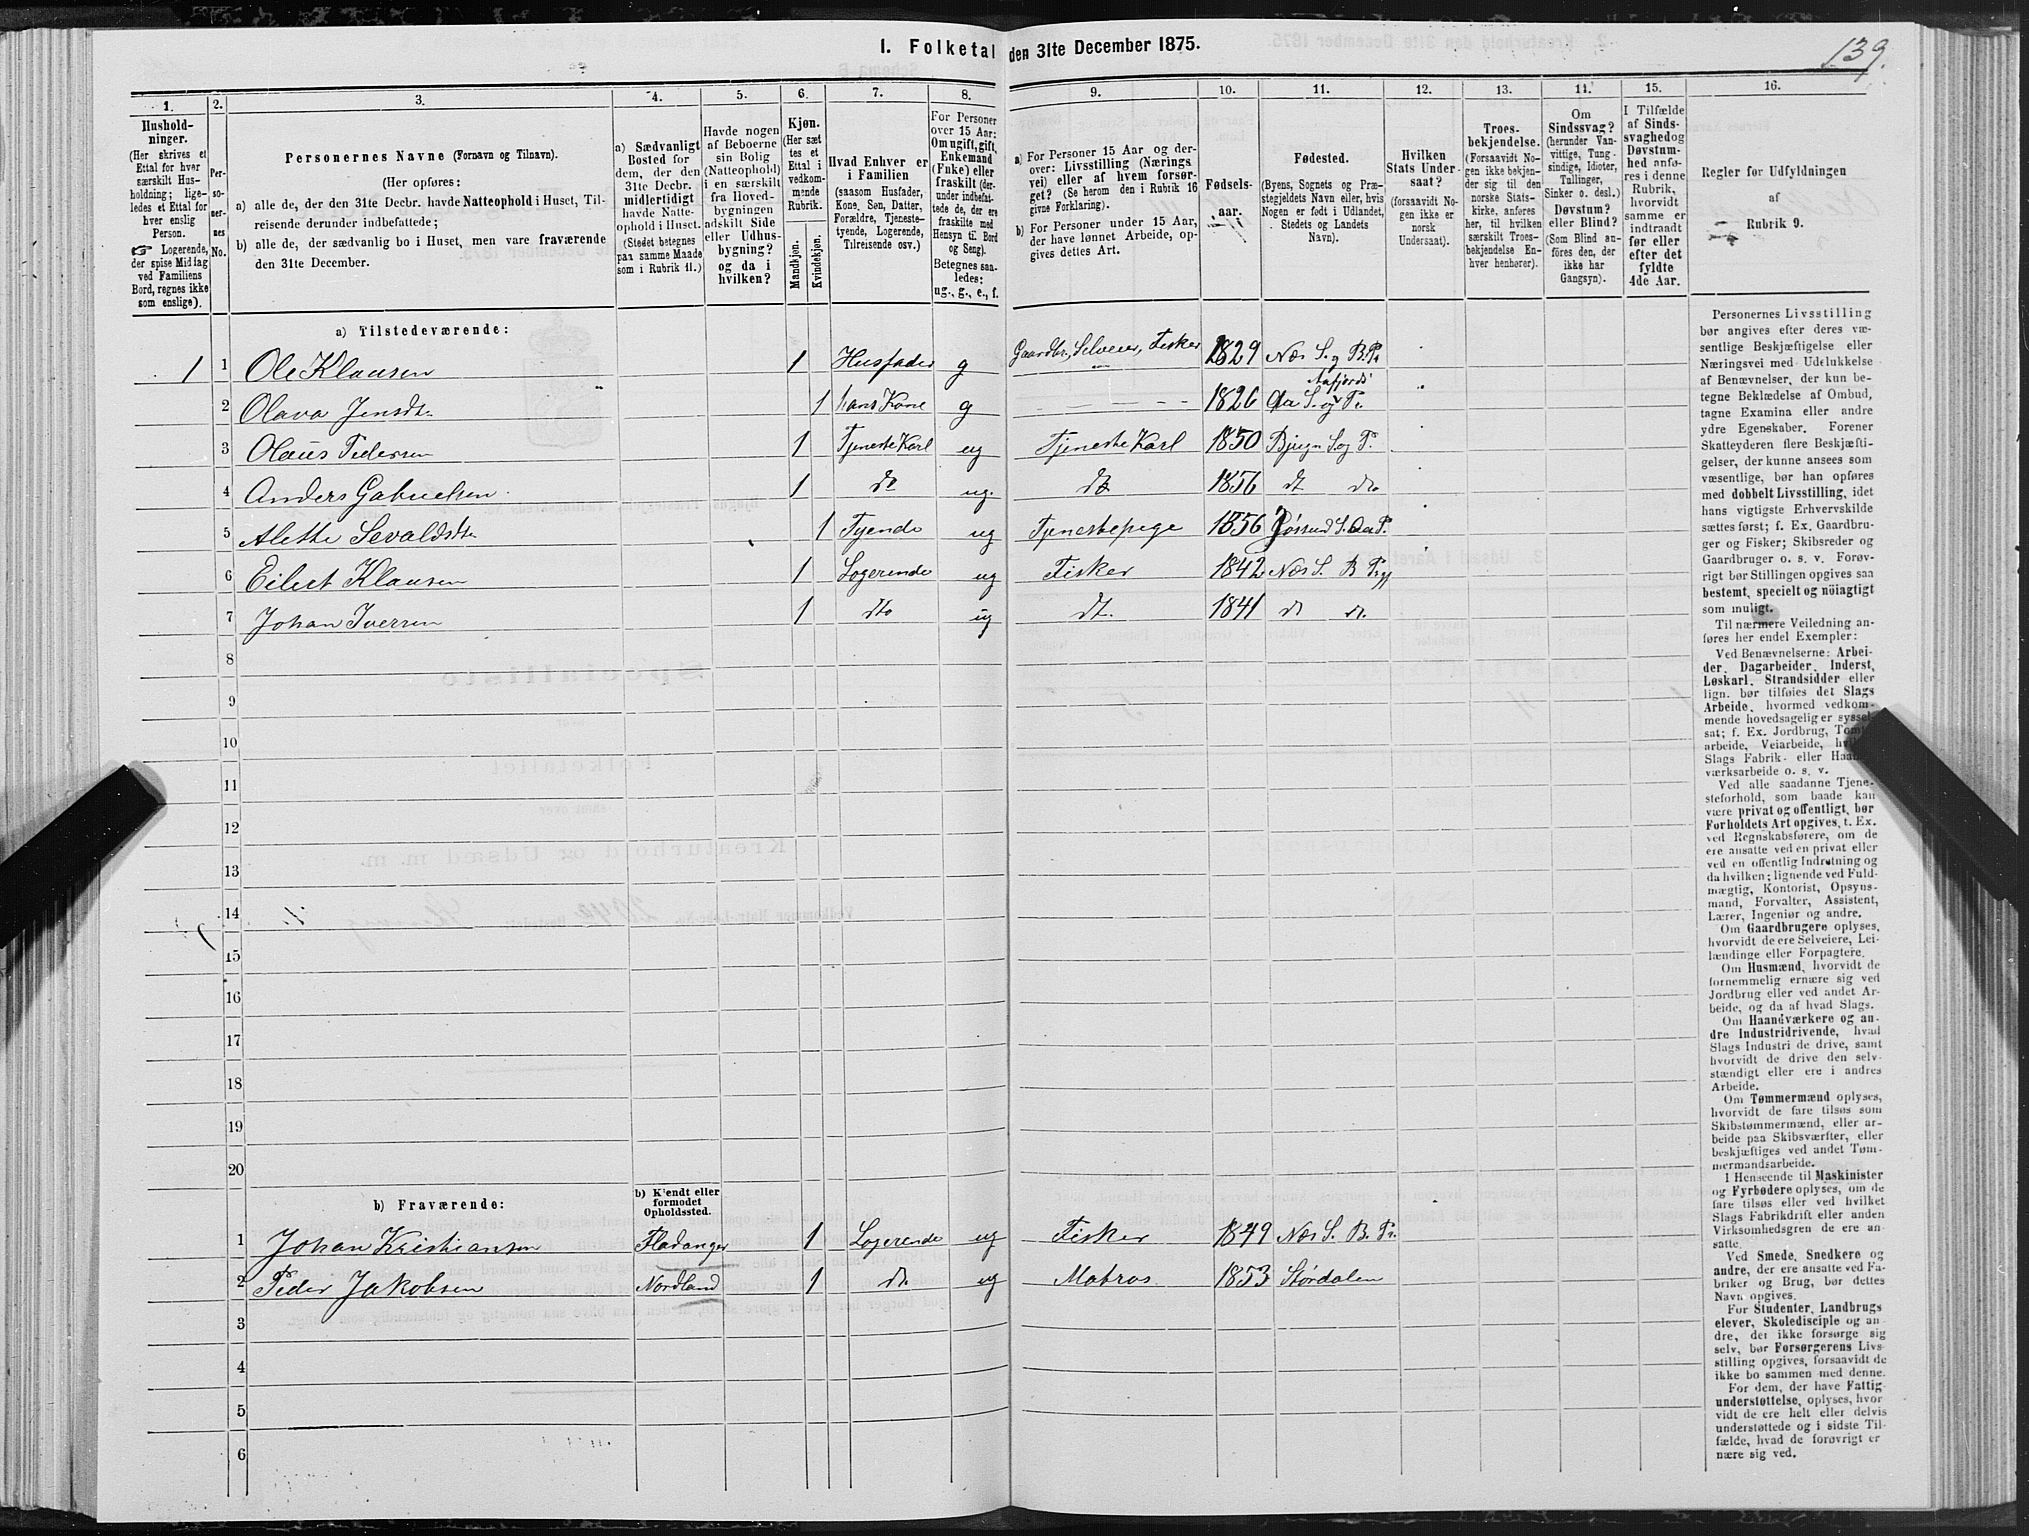 I. Folketal den 31te December 1875.
139.
1.
2.
3.
4.
5.
6.
7.
8.
9.
10.
11.
12.
13.
14.
15.
16.
Hushold-
ninger.
(Her skrives et
Ettal for hver
særskilt Hus-
holdning; lige-
ledes et Ettal for
hver enslig
Person.
☞ Logerende,
der spise Middag
ved Familiens
Bord, regnes ikke
som enslige).
Per-
so-
ner-
nes
No.
Personernes Navne (Fornavn og Tilnavn).
(Her opføres:
a) alle de, der den 31te Decbr. havde Natteophold i Huset, Til-
reisende derunder indbefattede;
b) alle de, der sædvanlig bo i Huset, men vare fraværende
den 31te December.
a) Sædvanligt
Bosted for
dem, der den
31te Decbr.
midlertidigt
havde Natte-
ophold i Huset.
(Stedet betegnes
paa samme Maade
som i Rubrik 11.)
Havde nogen
af Beboerne
sin Bolig
(Natteophold)
i en særskilt
fra Hoved-
bygningen
adskilt Side
eller Udhus-
bygning?
og da i
hvilken?
Kjøn.
(Her sæt
tes et
Ettal i
vedkom-
mende
Rubrik.
Mandkjøn.
Kvindekjøn.
Hvad Enhver er
i Familien
(saasom Husfader,
Kone, Søn, Datter,
Forældre, Tjeneste-
tyende, Logerende,
Tilreisende osv.)
For Personer
over 15 Aar:
Om ugift, gift,
Enkemand
(Enke) eller
fraskilt (der-
under indbefat-
tede de, der ere
fraskilte med
Hensyn til Bord
og Seng).
Betegnes saa-
ledes:
ug., g., e., f.
a) For Personer 15 Aar og der-
over: Livsstilling (Nærings
vei) eller af hvem forsør-
get? (Se herom den i Rubrik 16
givne Forklaring).
b) For Personer under 15 Aar,
der have lønnet Arbeide, op-
gives dettes Art.
Fødsels-
aar.
Fødested.
(Byens, Sognets og Præ-
stegjeldets Navn eller, hvis
Nogen er født i Udlandet,
Stedets og Landets
Navn).
Hvilken
Stats Under-
saat?
(forsaavidt No-
gen ikke er
norsk
Undersaat).
Troes-
bekjendelse.
(Forsaavidt No-
gen ikke bekjen-
der sig til den
norske Stats-
kirke, anføres
her, til hvilken
særskilt Troes-
bekjendelse En-
hver henhører).
Om
Sindssvag?
(herunder Van-
vittige, Tung-
sindige, Idioter,
Tullinger,
Sinker o. desl.)
Døvstum?
eller Blind?
(Som Blind an-
føres den, der
ikke har
Gangsyn).
I Tilfælde
af Sinds-
svaghed og
Døvstum-
hed anfø-
res i denne
Rubrik,
hvorvidt
samme er
indtraadt
før eller
efter det
fyldte
4de Aar.
Regler for Udfyldningen
af
Rubrik 9.
a) Tilstedeværende:
1 1 Ole Klausen 1 Husfader g Gaardbr, Selveier, Fisker 1829 Næs S. og B. Pr
2 Olava Jensdtr 1 hans Kone g 1826 Aa S. og Aafjords Pr.
3 Olaus Pedersen 1 Tjeneste Karl ug Tjeneste Karl 1850 Bjugn S. og P.
4 Anders Gabrielsen 1 do ug. do 1856 dt do
5 Alette Sevaldsdtr 1 Tyende ug Tjenestepige 1856 Jøssund S. Aa P.
6 Eilert Klausen 1 Logerende ug Fisker 1842 Næs S. B Prgj
7 Johan Iversen 1 dto ug dt. 1841 dt do
8
9
10
11
12
13
14
15
16
17
18
19
20
b) Fraværende:
b) Kjendt eller
formodet
Opholdssted.
1 Johan Kristiansen Fladanger 1 Logerende ug Fisker 1849 Næs S. B. Pr.
2 Peder Jakobsen Nordland 1 do ug Matros 1853 Størdalen
3
4
5
6
Personernes Livsstilling
bør angives efter deres væ-
sentlige Beskjæftigelse eller
Næringsvei med Udelukkelse
af Benævnelser, der kun be-
tegne Beklædelse af Ombud,
tagne Examina eller andre
ydre Egenskaber. Forener
Skatteyderen flere Beskjæfti-
gelser, der kunne ansees som
væsentlige, bør han opføres
med dobbelt Livsstilling, idet
hans vigtigste Erhvervskilde
sættes først; f. Ex. Gaardbru-
ger og Fisker; Skibsreder og
Gaardbruger o. s. v. Forøv-
rigt bør Stillingen opgives saa
bestemt, specielt og nöiagtigt
som muligt.
Til nærmere Veiledning an-
føres her endel Exempler:
Ved Benævnelserne: Arbei-
der, Dagarbeider, Inderst,
Løskarl, Strandsidder eller
lign. bør tilføies det Slags
Arbeide, hvormed vedkom-
mende hovedsagelig er syssel-
sat; f. Ex. Jordbrug, Tomt-
arbeide, Veiarbeide, hvilket
Slags Fabrik- eller Haand-
værksarbeide o. s. v.
Ved alle saadanne Tjene-
steforhold, som baade kan
være privat og offentligt, bør
Forholdets Art opgives, t. Ex.
ved Regnskabsførere, om de
ere ansatte ved en privat eller
ved en offentlig Indretning og
da hvilken; lignende ved Fuld-
mægtig, Kontorist, Opsyns-
mand, Forvalter, Assistent,
Lærer, Ingeniør og andre.
Om Gaardbrugere oplyses,
hvorvidt de ere Selveiere, Lei-
lændinge eller Forpagtere.
Om Husmænd, hvorvidt de
fornemmelig ernære sig ved
Jordbrug eller ved andet Ar-
beide, og da af hvad Slags.
Om Haandværkere og an-
dre Industridrivende, hvad
Slags Industri de drive, samt
hvorvidt de drive den selv-
stændigt eller ere i andres
Arbeide.
Om Tømmermænd oplyses,
hvorvidt de fare tilsøs som
Skibstømmermænd, eller ar-
beide paa Skibsværfter, eller
beskjæftiges ved andet Tøm-
mermandsarbeide.
I Henseende til Maskinister
og Fyrbødere oplyses, om de
fare tilsøs eller ved hvilket
Slags Fabrikdrift eller anden
Virksomhedsgren de ere an-
satte.
Ved Smede, Snedkere og
andre, der ere ansatte ved Fa-
briker og Brug, bør dettes
Navn opgives.
For Studenter, Landbrugs
elever, Skoledisciple og an-
dre, der ikke forsørge sig
selv, bør Forsørgerens Livs-
stilling opgives, forsaavidt de
ikke bo sammen med denne.
For dem, der have Fattig
understøttelse, oplyses, hvor
vidt de ere helt eller delvis
understøttede og i sidste Til-
fælde, hvad de forøvrigt er
nære sig ved.